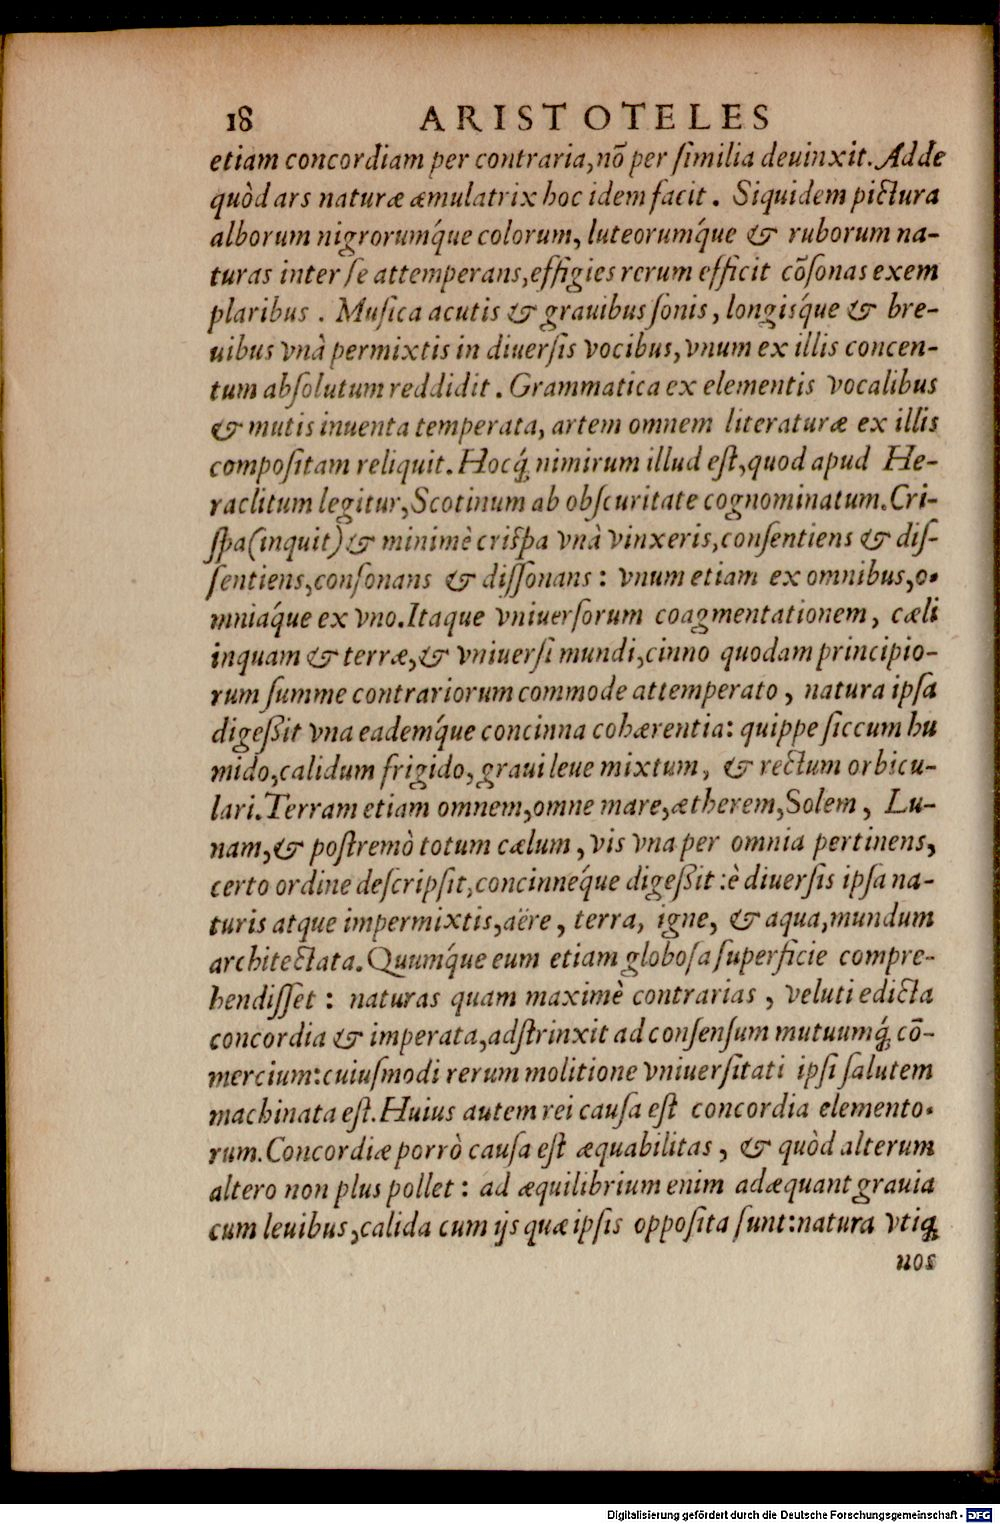 18 ARISTOTELES
etiam concordiam per contraria, nõ per ſimilia deuinxit. Adde
quòd ars naturæ æmulatrix hoc idem facit. Siquidem pictura
alborum nigrorumq́ue colorum, luteorumq́ue & ruborum na-
turas inter ſe attemperans, effigies rerum efficit cõſonas exem
plaribus. Muſica acutis & grauibus ſonis, longisq́ue & bre-
uibus vnà permixtis in diuerſis vocibus, vnum ex illis concen-
tum abſolutum reddidit. Grammatica ex elementis vocalibus
& mutis inuenta temperata, artem omnem literaturæ ex illis
compoſitam reliquit. Hocq́; nimirum illud eſt, quod apud He-
raclitum legitur, Scotinum ab obſcuritate cognominatum. Cri-
ſpa (inquit) & minimè criſpa vnà vinxeris, conſentiens & diſ-
ſentiens, conſonans & diſſonans: vnum etiam ex omnibus, o-
mniaq́ue ex vno. Itaque vniuerſorum coagmentationem, cæli
inquam & terræ, & vniuerſi mundi, cinno quodam principio-
rum ſumme contrariorum commode attemperato, natura ipſa
digeßit vna eademq́ue concinna cohærentia: quippe ſiccum hu
mido, calidum frigido, graui leue mixtum, & rectum orbicu-
lari. Terram etiam omnem, omne mare, ætherem, Solem, Lu-
nam, & poſtremò totum cælum, vis vna per omnia pertinens,
certo ordine deſcripſit, concinneq́ue digeßit: è diuerſis ipſa na-
turis atque impermixtis, aëre, terra, igne, & aqua, mundum
architectata. Quumq́ue eum etiam globoſa ſuperficie compre-
hendiſſet: naturas quam maximè contrarias, veluti edicta
concordia & imperata, adſtrinxit ad conſenſum mutuumq́; cõ-
mercium: cuiuſmodi rerum molitione vniuerſitati ipſi ſalutem
machinata eſt. Huius autem rei cauſa eſt concordia elemento-
rum. Concordiæ porrò cauſa eſt æquabilitas, & quòd alterum
altero non plus pollet: ad æquilibrium enim adæquant grauia
cum leuibus, calida cum ijs quæ ipſis oppoſita ſunt: natura vtiq;
nos
Digitalisierung gefördert durch die Deutsche Forschungsgemeinschaft - DFG